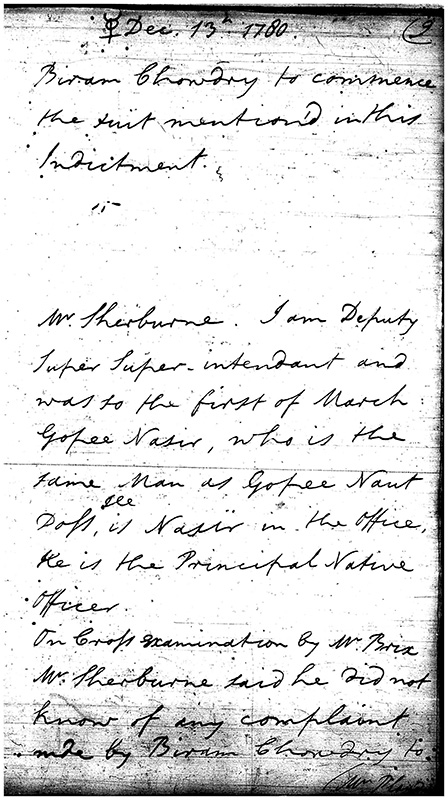 ♀ Dec. 13th. 1780. 9
Biram Chowdry to commence
the suit mention'd in this
Indictment.
Mr. Sherburne. I am Deputy
Super Super-intendant and
was so the first of March
Gopee Nasir, who is the
same Man as Gopee Naut
Doss, is Nasir in the Office,
He is the Principal Native
Officer.
On Cross examination by Mr. Brix
Mr. Sherburne said he did not
know of any complaint
made by Biram Chowdry to
Mr.